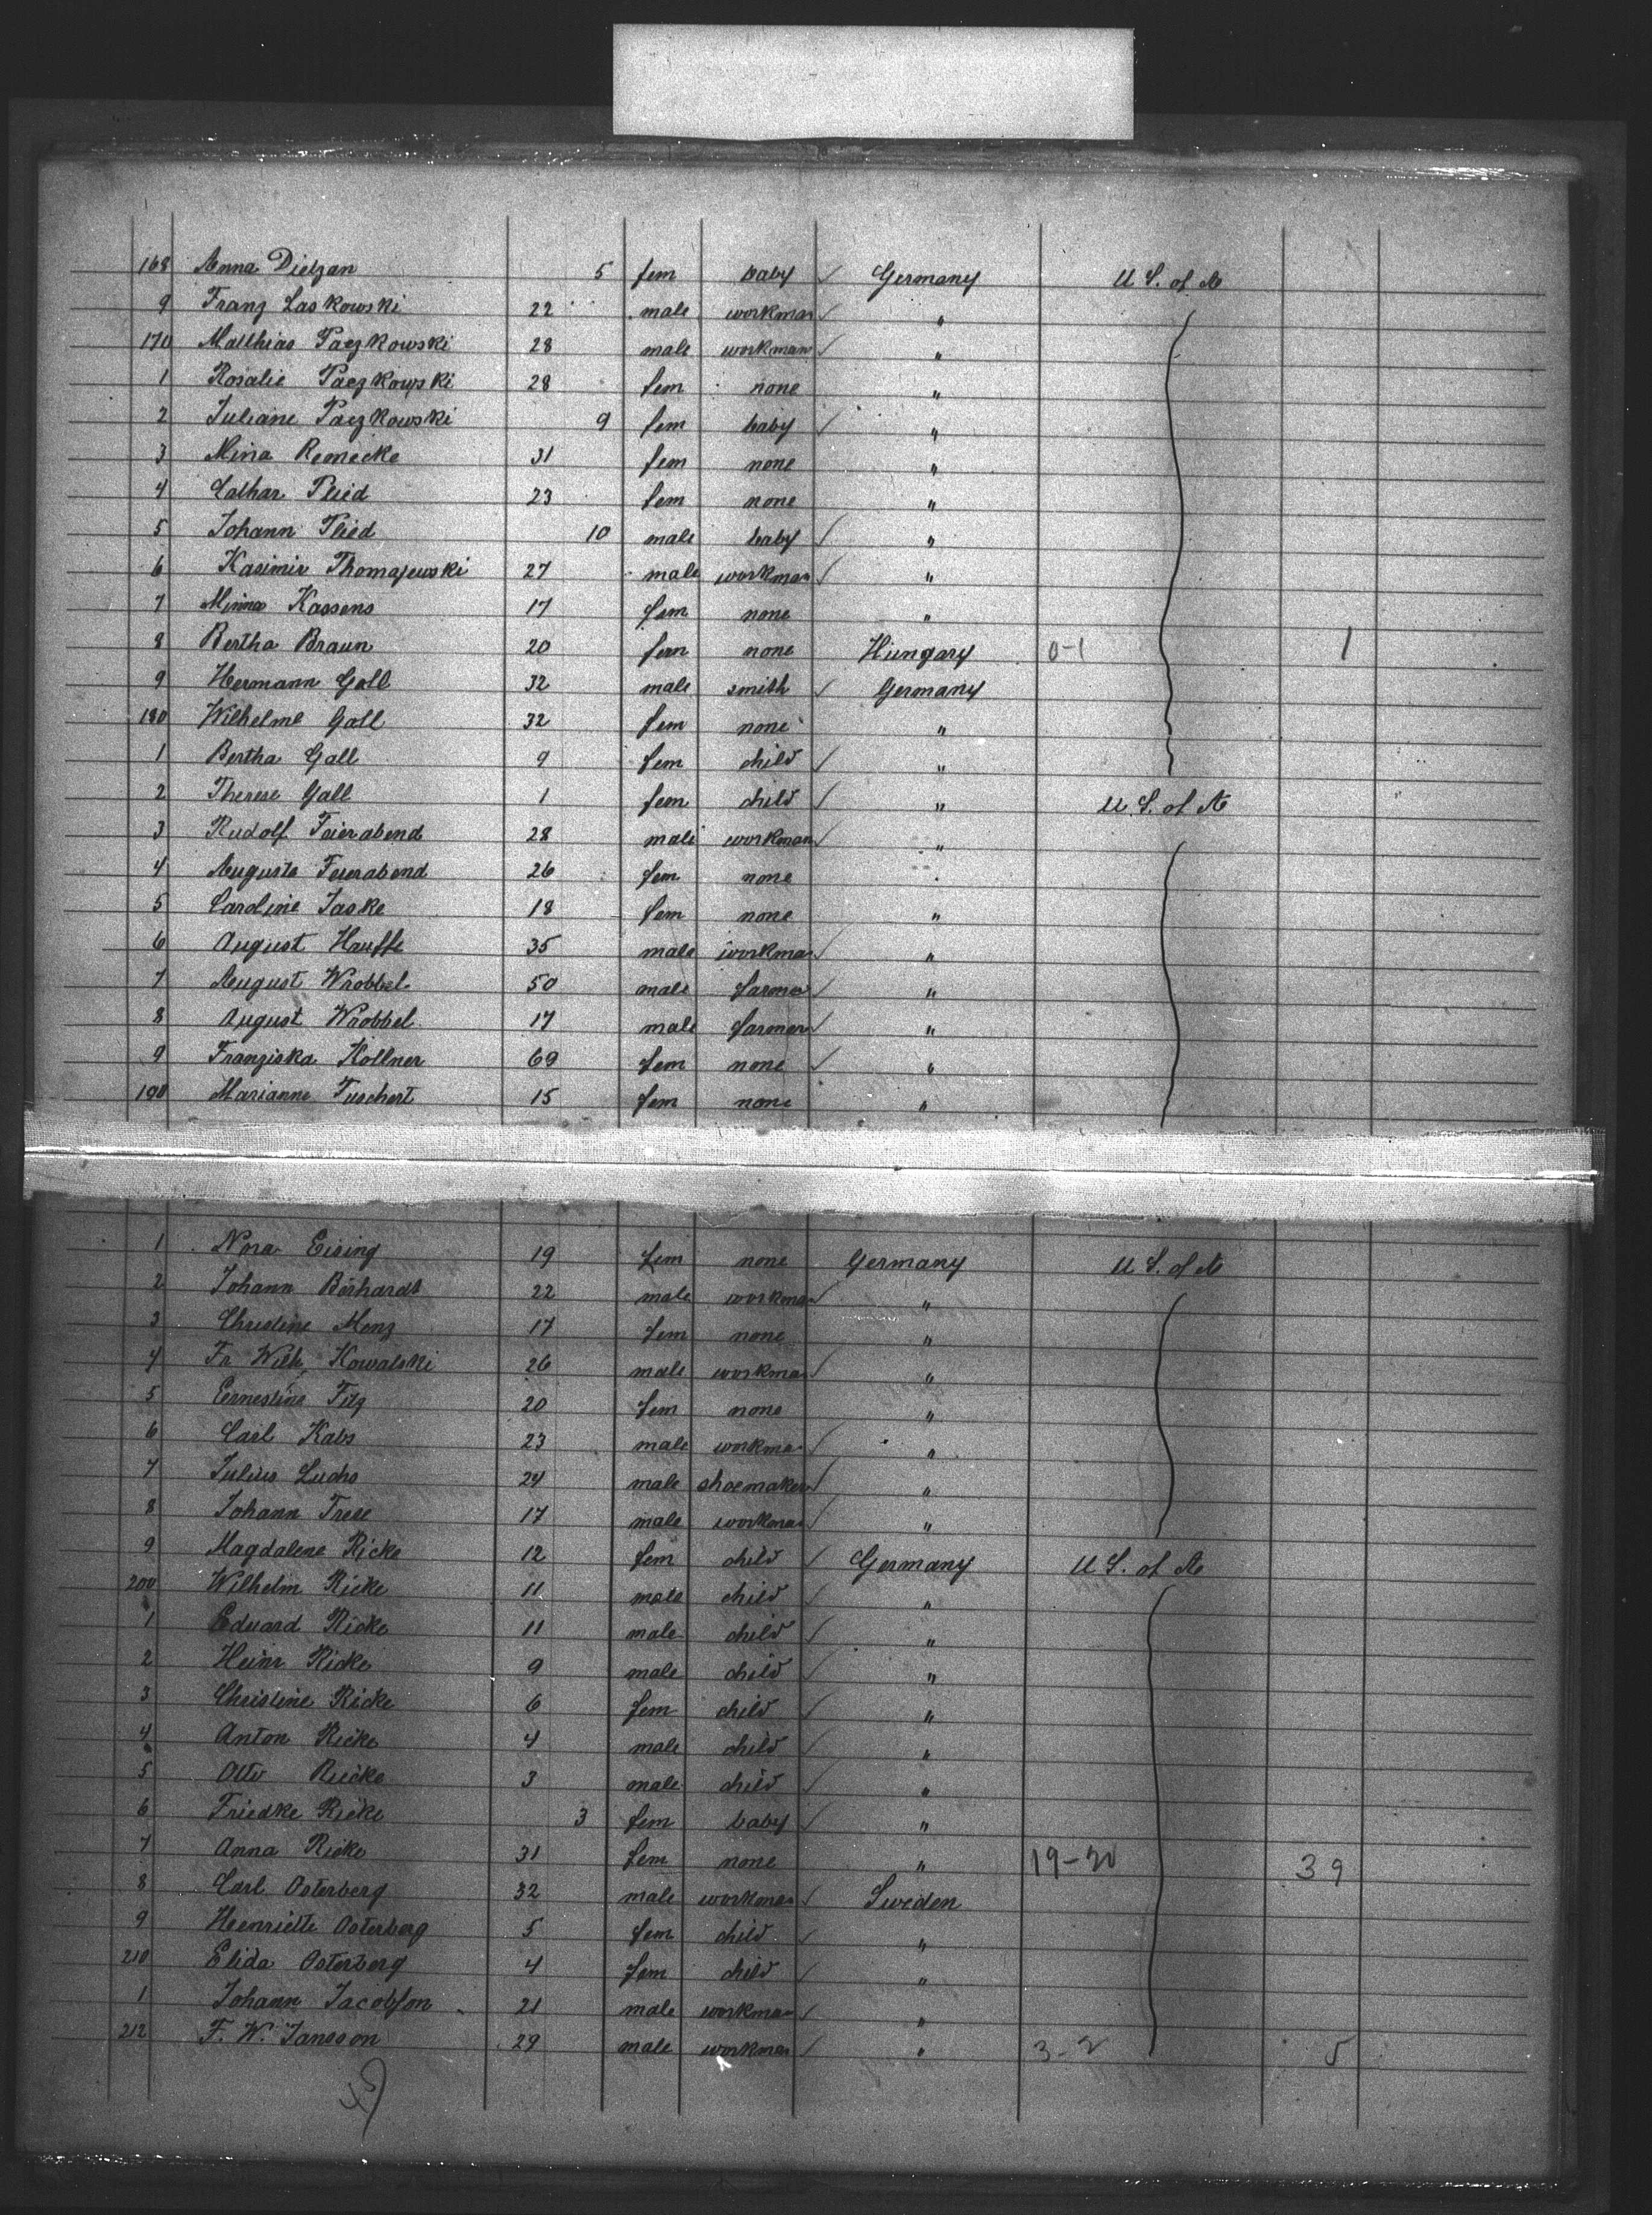 168 Anna Dietzan 5 fem baby ✓ Germany U.S. of A
9 Franz Laskowski 22 male workman ✓ "
170 Matthias Paczkowski 28 male workman ✓ "
1 Rosalie Paczkowski 28 fem none "
2 Juliane Paczkowski 9 fem baby ✓ "
3 Mina Remecke 31 fem none "
4 Cathar Plied 23 fem none "
5 Johann Plied 10 male baby ✓ "
6 Kasimir Thomajewski 27 male workman ✓ "
7 Minna Kassens 17 fem none "
8 Bertha Braun 20 fem none Hungary 0-1 1
9 Hermann Gall 32 male smith ✓ Germany
180 Wilhelme Gall 32 fem none "
1 Bertha Gall 9 fem child ✓ "
2 Therese Gall 1 fem child ✓ " U.S. of A
3 Rudolf Feierabend 28 male workman ✓ "
4 Auguste Feuerabend 26 fem none "
5 Caroline Jaske 18 fem none "
6 August Hauffe 35 male workman ✓ "
7 August Wrobbel 50 male farmer ✓ "
8 August Wrobbel 17 male farmer ✓ "
9 Franziska Kollner 69 fem none ✓ "
190 Marianne Tuschert 15 fem none "
1 Nora Eising 19 fem none Germany U.S. of A
2 Johann Berhardt 22 male workman ✓ "
3 Christine Menz 17 fem none "
4 Fr Wilh. Kowalski 26 male workman ✓ "
5 Eernestine Fitz 20 fem none "
6 Carl Kabs 23 male workman ✓ "
7 Julius Luchs 24 male shoemaker ✓ "
8 Johann Trese 17 male workman ✓ "
9 Magdalene Ricke 12 fem child ✓ Germany U.S. of A
200 Wilhelm Ricke 11 male child ✓ "
1 Eduard Ricke 11 male child ✓ "
2 Heinr Ricke 9 male child ✓ "
3 Christine Ricke 6 fem child ✓ "
4 Anton Ricke 4 male child ✓ "
5 Otto Ricke 3 male child ✓ "
6 Friedke Ricke 3 fem baby ✓ "
7 Anna Ricke 31 fem none " 19-20 39
8 Carl Osterberg 32 male workman ✓ Sweden
9 Henriette Osterberg 5 fem child ✓ "
210 Elida Osterberg 4 fem child ✓ "
1 Johann Jacobson 21 male workman ✓ "
212 F. W. Jansson 29 male workman ✓ " 3-2 5
45